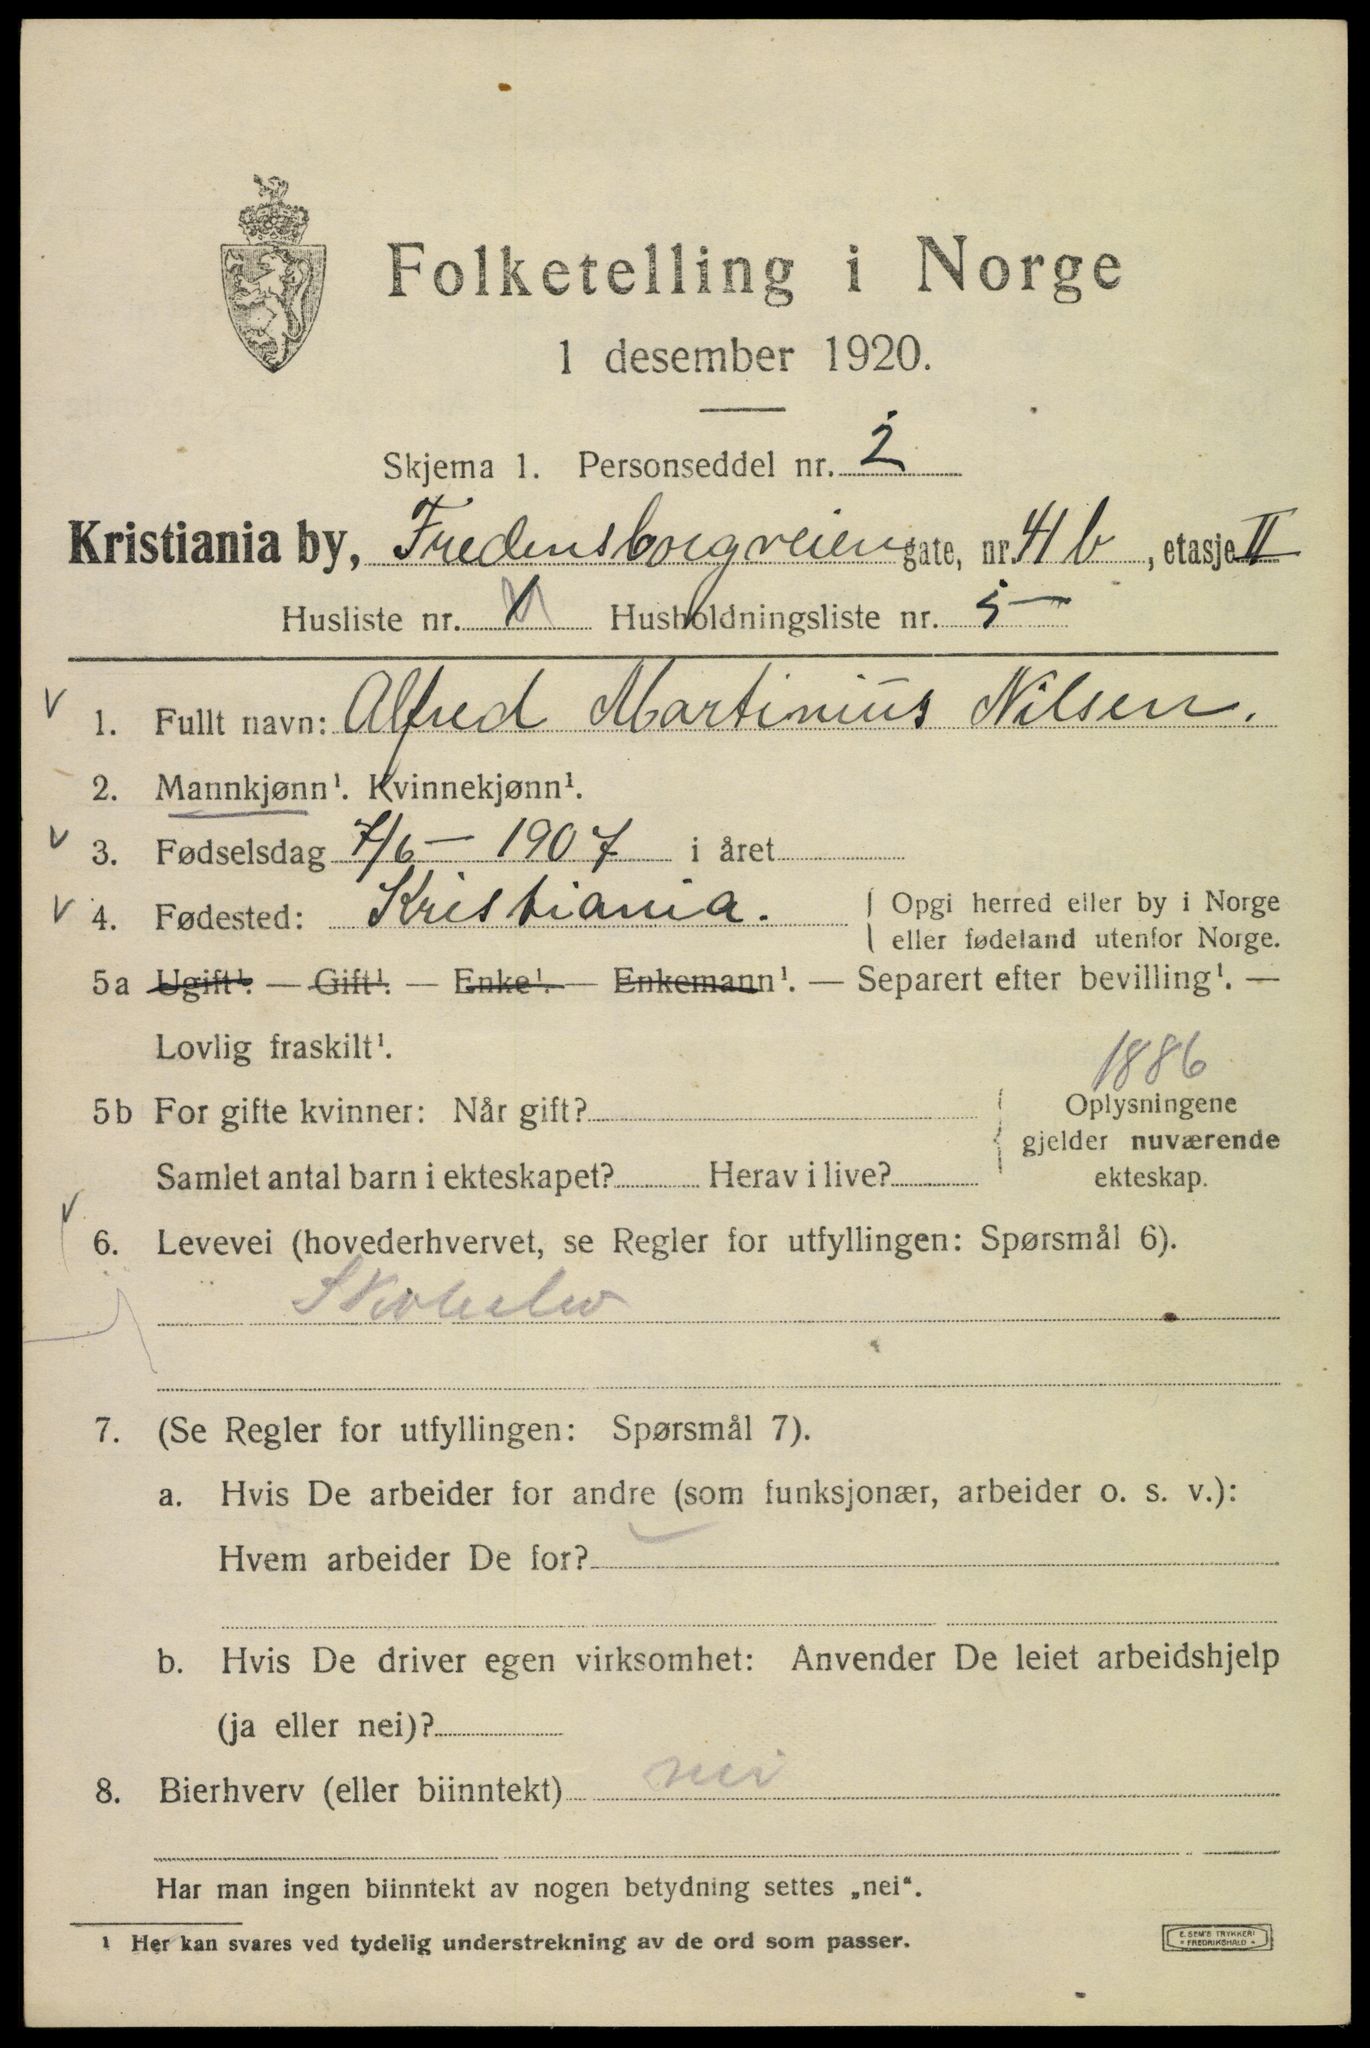 Folketelling i Norge
1 desember 1920.
Skjema 1. Personseddel nr. 2
Kristiania by, Fredensborgveien gate, nr. 41 b, etasje II
Husliste nr. Husholdningsliste nr. 5
1. Fullt navn: Alfred Martinius Nilsen.
2. Mannkjønn¹. Kvinnekjønn¹.
3. Fødselsdag 7/6 — 1907 i året
4. Fødested: Kristiania. Opgi herred eller by i Norge
eller fødeland utenfor Norge.
5a Ugift¹. — Gift¹. — Enke¹. — Enkemann¹. — Separert efter bevilling¹. —
Lovlig fraskilt¹.
1886
5b For gifte kvinner: Når gift? Oplysningene
gjelder nuværende
Samlet antal barn i ekteskapet? Herav i live? ekteskap.
6. Levevei (hovederhvervet, se Regler for utfyllingen: Spørsmål 6).
7. (Se Regler for utfyllingen: Spørsmål 7).
a. Hvis De arbeider for andre (som funksjonær, arbeider o. s. v.):
Hvem arbeider De for?
b. Hvis De driver egen virksomhet: Anvender De leiet arbeidshjelp
(ja eller nei)?
8. Bierhverv (eller biinntekt) nei
Har man ingen biinntekt av nogen betydning settes „nei".
¹ Her kan svares ved tydelig understrekning av de ord som passer.
E. SEM'S TRYKKERI
* FREDRIKSHALD *